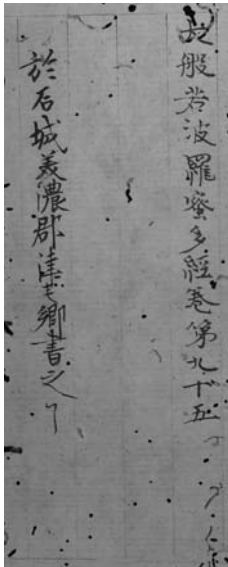 大般若波羅蜜多經巻第九十五
於石城義濃郡津毛郷書之了